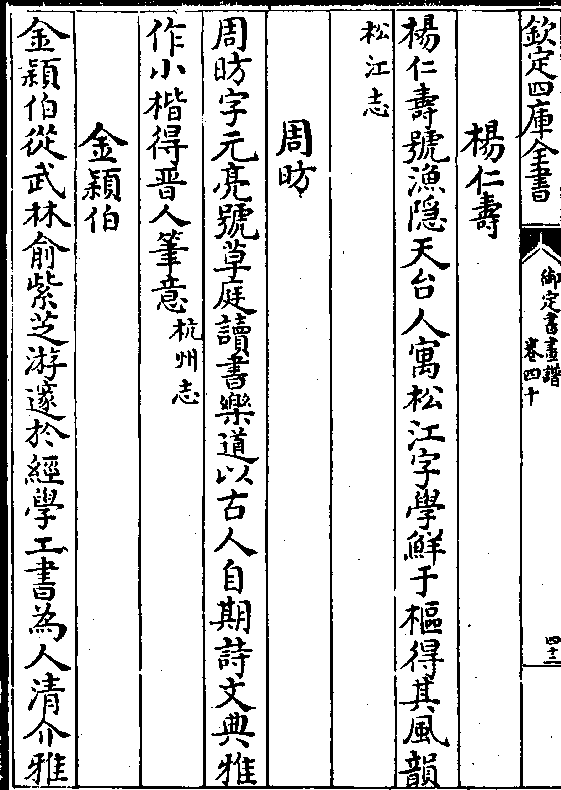 欽定四庫全書
御定書畫譜
卷四十
四十三
楊仁壽
楊仁壽號漁隐天台人寓松江字學鮮于樞得其風韻
松江志
周昉
周昉字元亮號草庭讀書樂道以古人自期詩文典雅
作小楷得晋人筆意杭州志
金穎伯
金穎伯從武林俞紫芝游邃於經學工書為人清介雅